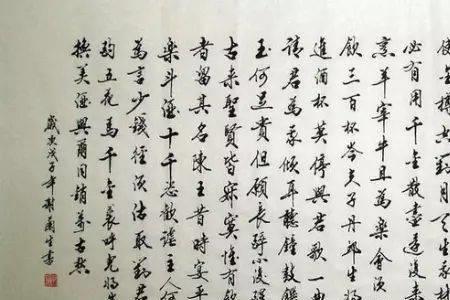 使金樽空對月天生我材
必有用千金散盡還復來
烹羊宰牛且為樂會須
飲三百杯岑夫子丹邱生將
進酒杯莫停與君歌一曲
請君為我傾耳聽鐘鼓饌
玉何足貴但願長醉不復醒
古來聖賢皆寂寞惟有飲
者留其名陳王昔時宴平
樂斗酒十千恣歡謔主人何
為言少錢徑須沽取對君
酌五花馬千金裘呼兒將出
換美酒與爾同銷萬古愁
歲次戊子年謝生書